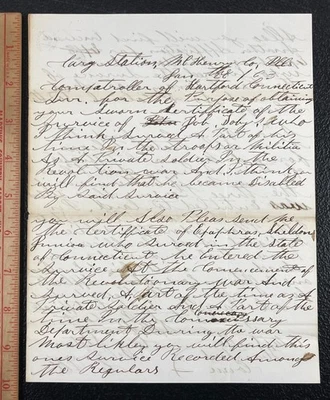 Cary Station, McHenry Co, Ills
Jan 28 / 53
Comptroller of Hartford Connecticut
Sir, for the Purpose of obtaining
your Sworn Certificate of the
Service of
I think Served A Part of his
time In the troops or Militia
As A Private Soldier In the
Revolution war And I think you
will find that he became Disabled
By Said Service
you will Also Pleas Send me
the Certificate of Epaphras Sheldon
Junior who Served in the State
of Connecticut he entered the
Service At the Comencement of
the Revolutionary War And
Served A Part of the time as A
Private Soldier And Part of the
time In the Commissary
Department During the war
Most likley you will find this
ones Service Recorded Among
the Regulars